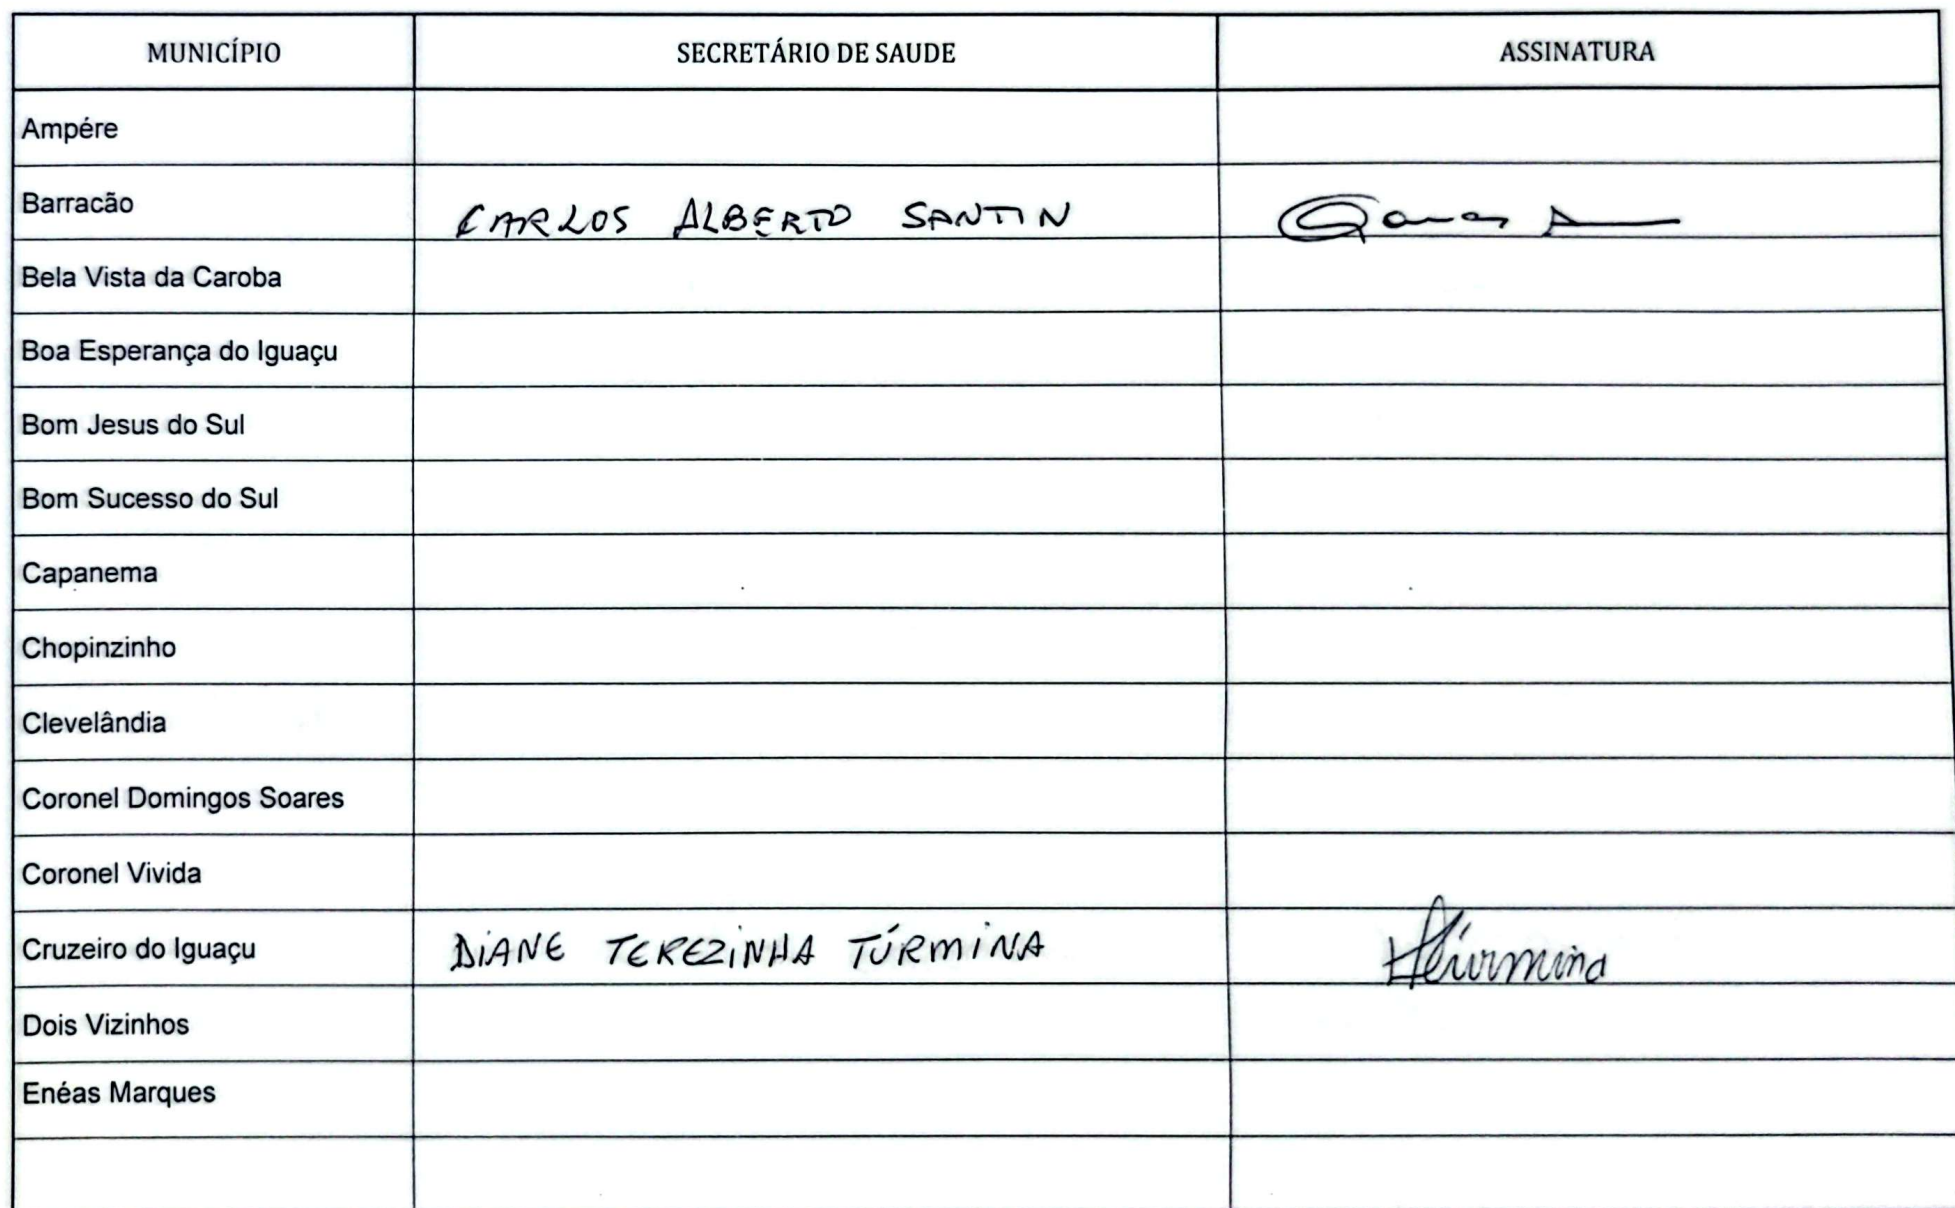 MUNICÍPIO SECRETÁRIO DE SAUDE ASSINATURA
Ampére
Barracão CARLOS ALBERTO SANTIN
Bela Vista da Caroba
Boa Esperança do Iguaçu
Bom Jesus do Sul
Bom Sucesso do Sul
Capanema
Chopinzinho
Clevelândia
Coronel Domingos Soares
Coronel Vivida
Cruzeiro do Iguaçu DIANE TEREZINHA TÚRMINA
Dois Vizinhos
Enéas Marques